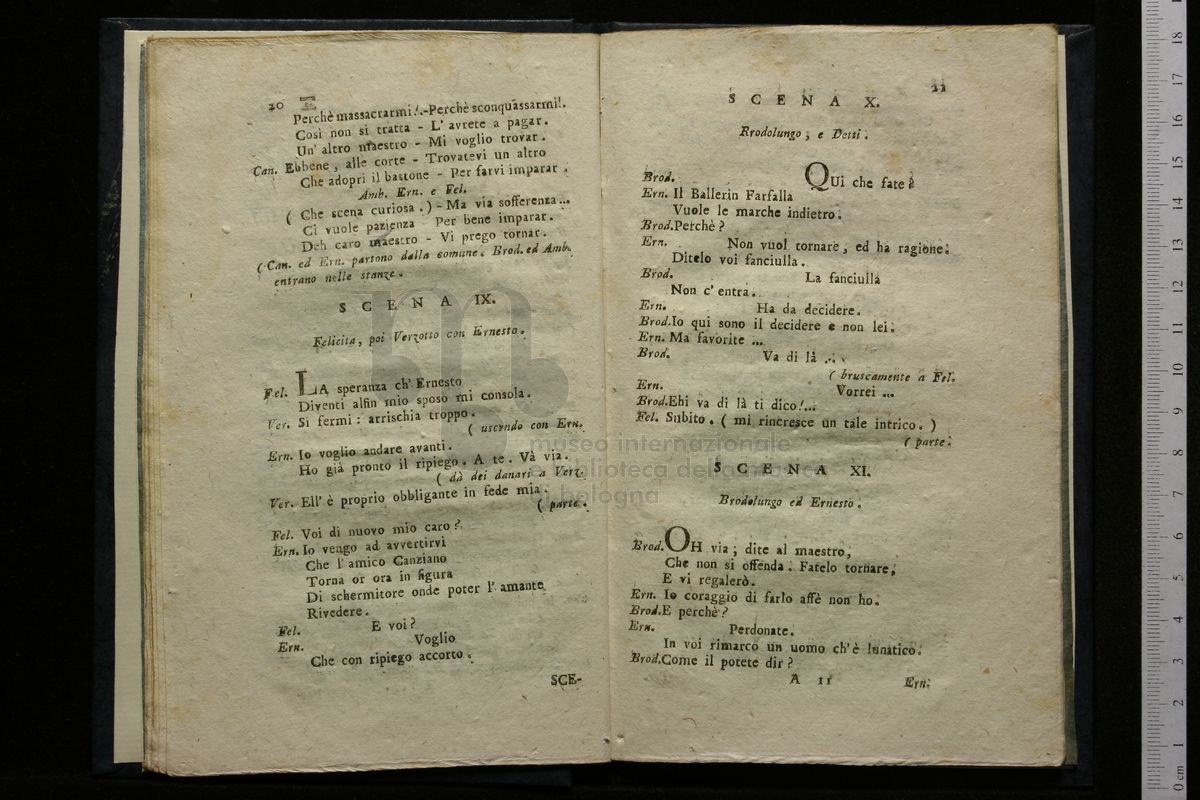 20
Perchè massacrarmi!.-Perchè sconquassarmi!.
Così non si tratta - L' avrete a pagar.
Un' altro maestro - Mi voglio trovar.
Can. Ebbene, alle corte - Trovatevi un altro
Che adopri il bastone - Per farvi imparar.
Amb. Ern. e Fel.
( Che scena curiosa. ) - Ma via sofferenza...
Ci vuole pazienza Per bene imparar.
Deh caro maestro - Vi prego tornar.
( Can. ed Ern. partono dalla comune. Brod. ed Amb.
entrano nelle stanze.
SCENA IX.
Felicita, poi Verzotto con Ernesto.
Fel. LA speranza ch' Ernesto
Diventi alfin mio sposo mi consola.
Ver. Si fermi: arrischia troppo.
( uscendo con Ern.
Ern. Io voglio andare avanti.
Ho già pronto il ripiego. A te. Và via.
( dà dei danari a Verz.
Ver. Ell' è proprio obbligante in fede mia.
( parte.
Fel. Voi di nuovo mio caro?
Ern. Io vengo ad avvertirvi
Che l' amico Canziano
Torna or ora in figura
Di schermitore onde poter l' amante
Rivedere.
Fel. E voi?
Ern. Voglio
Che con ripiego accorto.
SCE-
11
SCENA X.
Brodolungo, e Detti.
Brod. QUì che fate?
Ern. Il Ballerin Farfalla
Vuole le marche indietro.
Brod. Perchè?
Ern. Non vuol tornare, ed ha ragione.
Ditelo voi fanciulla.
Brod. La fanciulla
Non c' entra.
Ern. Ha da decidere.
Brod. Io qui sono il decidere e non lei.
Ern. Ma favorite ...
Brod. Va di là ...
( bruscamente a Fel.
Ern. Vorrei ...
Brod. Ehi va di là ti dico!...
Fel. Subito. ( mi rincresce un tale intrico. )
( parte.
SCENA XI.
Brodolungo ed Ernesto.
Brod. OH via; dite al maestro,
Che non si offenda. Fatelo tornare,
E vi regalerò.
Ern. Io coraggio di farlo affè non ho.
Brod. E perchè?
Ern. Perdonate.
In voi rimarco un uomo ch' è lunatico.
Brod. Come il potete dir?
A 11
Ern.
museo internazionale
biblioteca della musica
bologna
0 cm 1 2 3 4 5 6 7 8 9 10 11 12 13 14 15 16 17 18